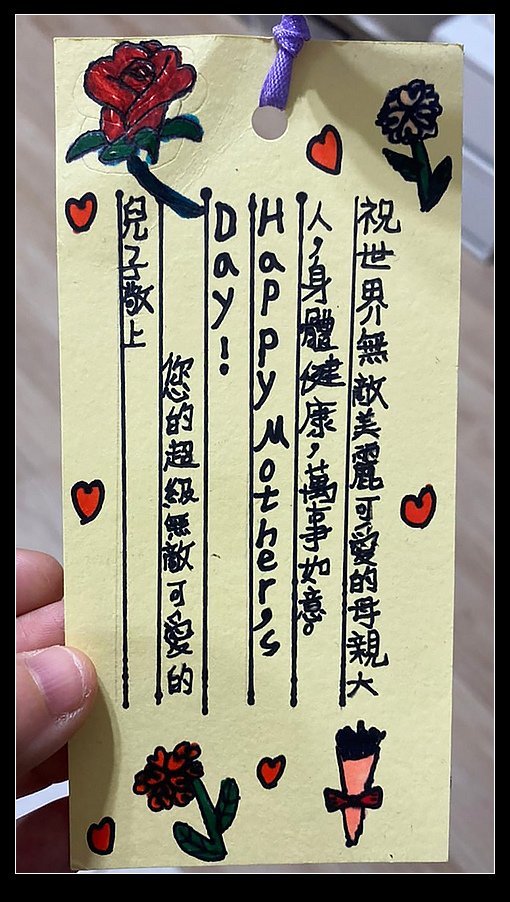 祝世界無敵美麗可愛的母親大
人，身體健康，萬事如意。
Happy Mother's
Day!
您的超級無敵可愛的
兒子敬上